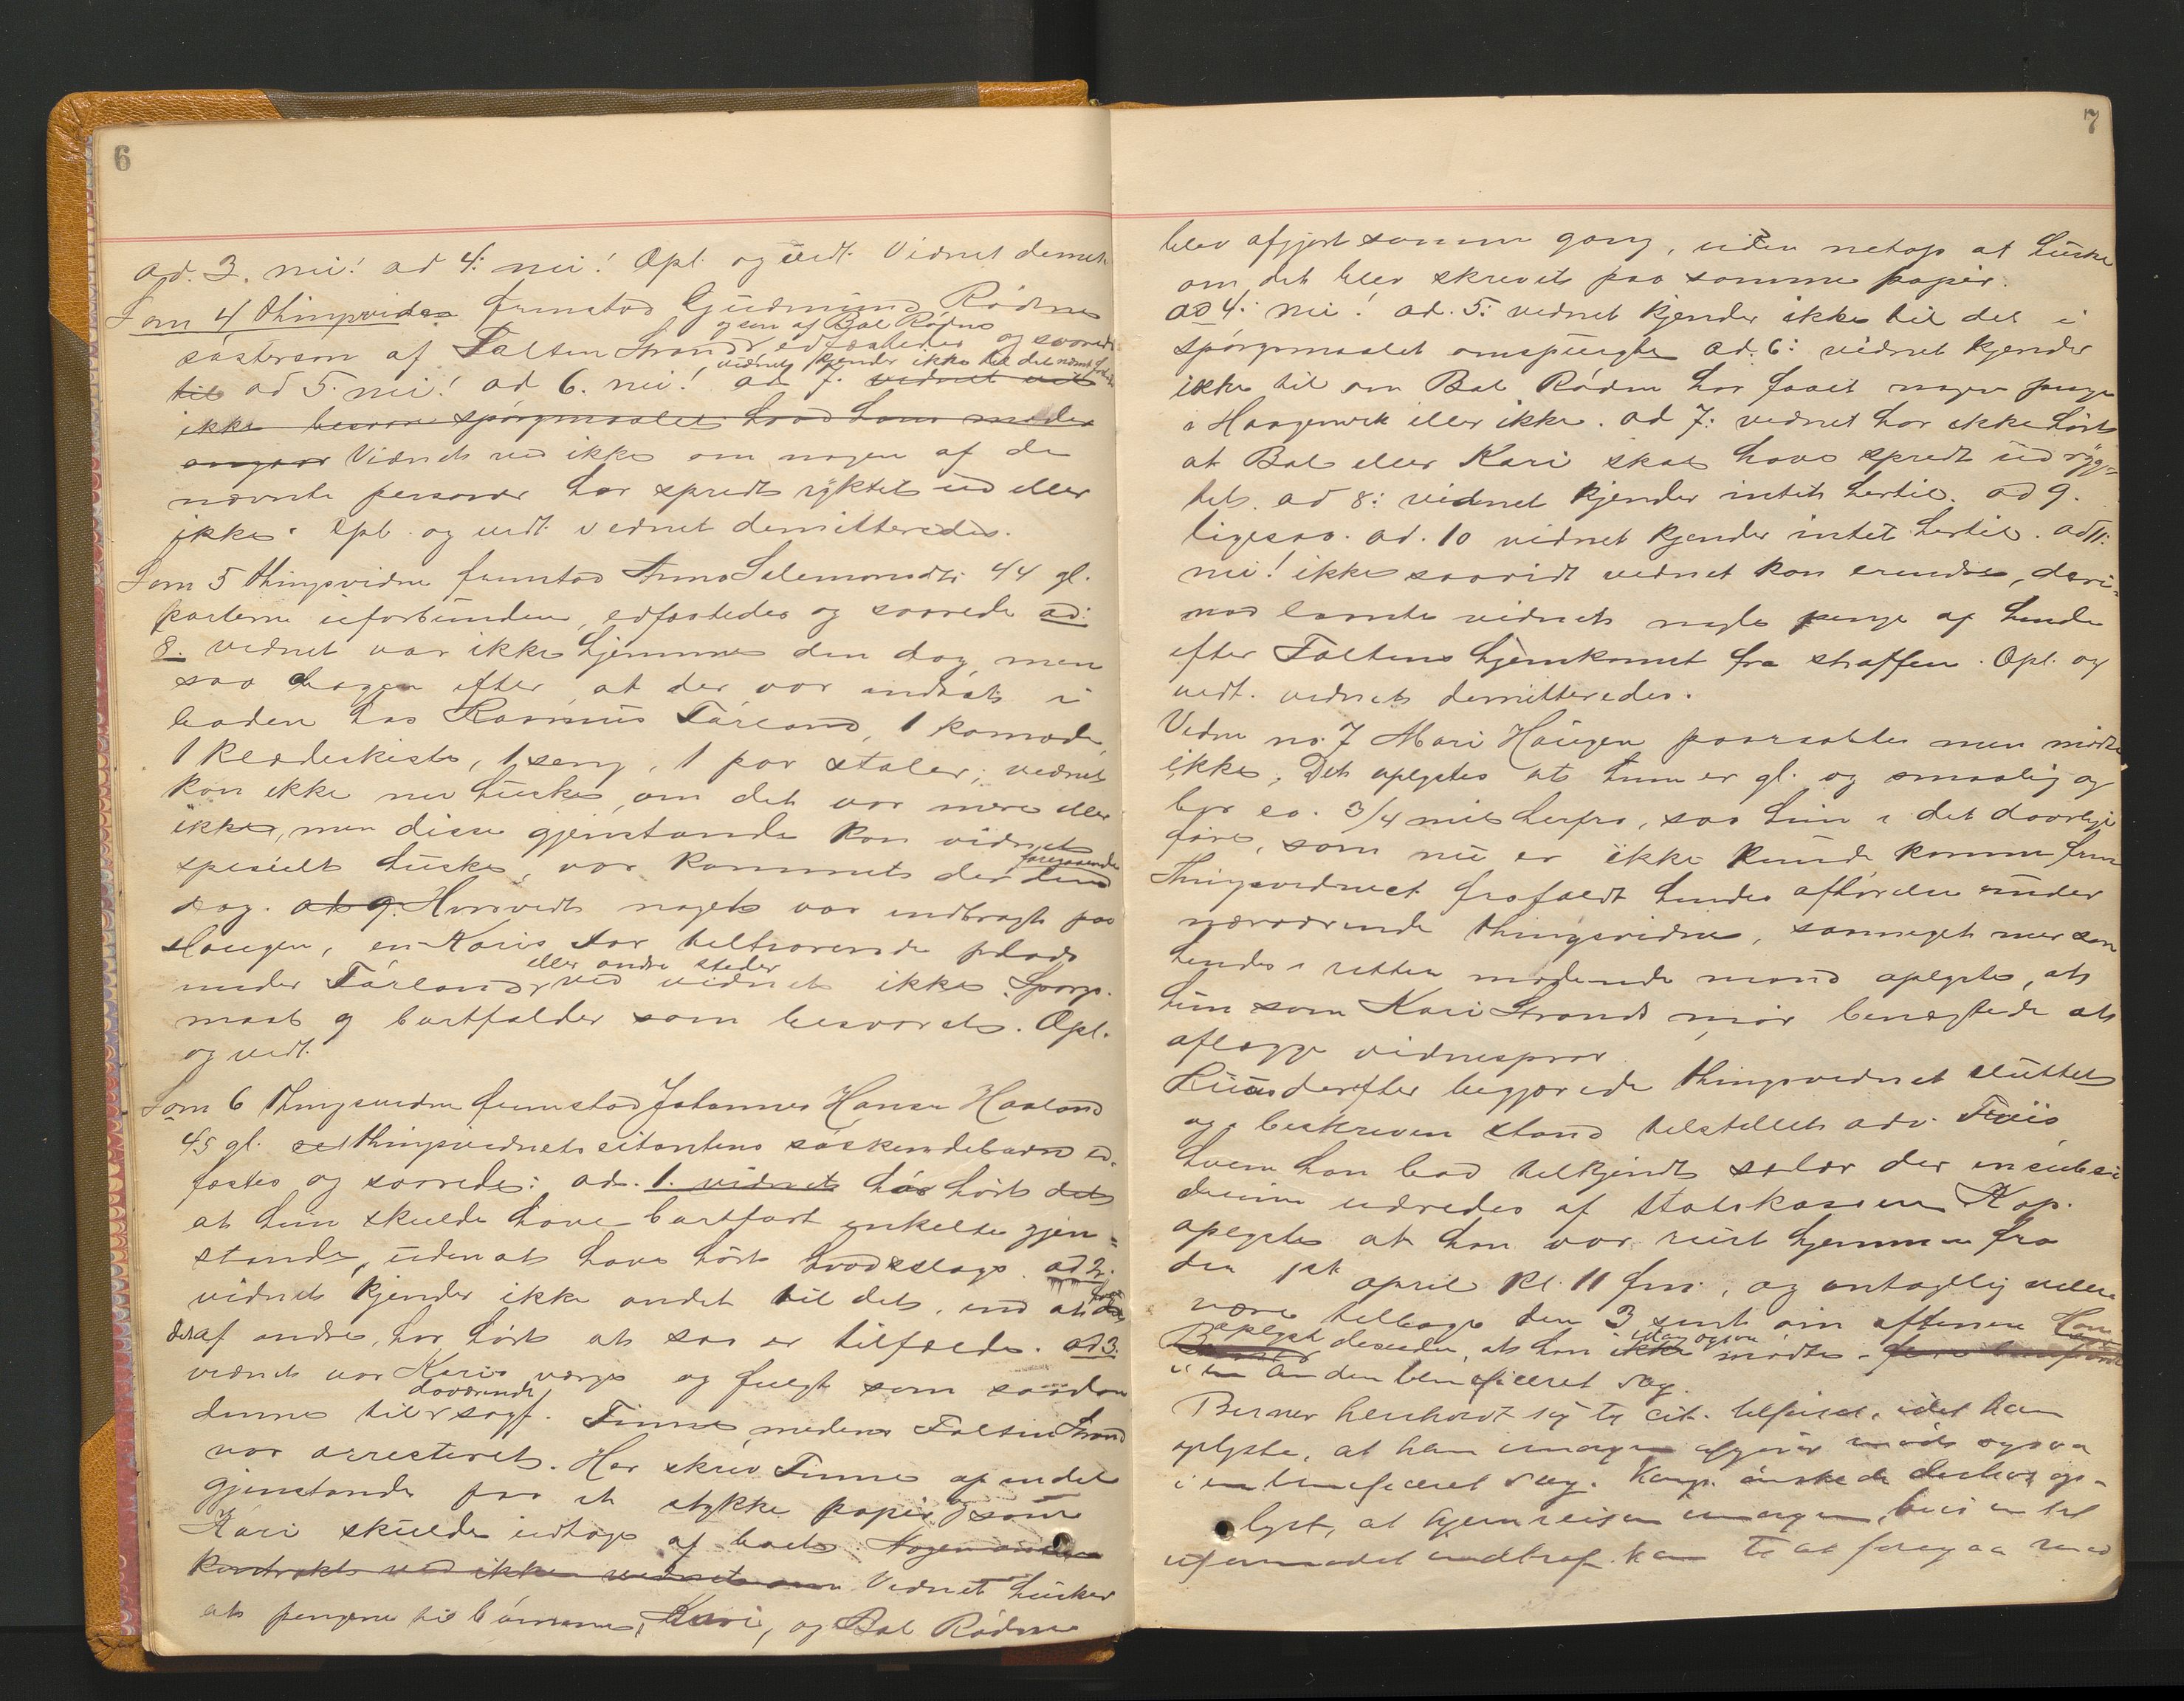 6
ad. 3. nei! ad 4: nei! Opl. og vedt. Vidnet demit.
Som 4 thingsvidne fremstod Gudmund Rödne
og søn af Bal Rödne
søstersøn af Falten Strand, edfæstedes og svarede
vidnet kjender ikke til det nævnte
til ad 5. nei! ad 6. nei! ad 7. vidnet ved
ikke besvare spörgsmaalet hvad hans moder
angaar Vidnet ved ikke om nogen af de
nævnte personer har spredt ryktet ud eller
ikke. Opl. og vedt. vidnet demitteredes.
Som 5 thingsvidne fremstod Anna Salemonsdtr 44 gl.
parterne uforbunden, edfæstedes og svarede ad:
8. vidnet var ikke hjemme den dag, men
saa dagen efter, at der var indsat i
boden hos Rasmus Tárland, 1 komode,
1 klædeskiste, 1 seng, 1 par stoler; vidnet
kan ikke nu huske, om det var mere eller
ikke, men disse gjenstande kan vidnet
foregaaende
spesielt huske, var kommet der den
dag. ad 9. Hvorvidt noget var indbragt paa
Haugen, en Karis far tilhørende plads
eller andre steder
under Tárland, ved vidnet ikke. Spørgs-
maal 9 bortfalder som besvaret. Opl.
og vedt.
Som 6 thingsvidne fremstod Johannes Hansen Haaland
45 gl. thingsvidnets citantens søskendebarn ed-
fæstes og svarede: ad. 1. vidnet har hørt det
at hun skulde have bortført enkelte gjen-
stande, uden at have hørt hvadslags. ad 2.
vidnet kjender ikke andet til det, end at
det af andre, har hört at saa er tilfælde. ad 3.
vidnet var Karis værge og fulgte som saadan
daværende
denne til sagf. Tinne, medens Falten Strand
var arresteret. Her skrev Tinne op en del
gjenstande paa et stykke papir, som
Kari skulde udtage af boet. Nogen anden
kontrakt ved ikke vidnet om Vidnet husker
at pengene til börnene, Kari, og Bal Rödne
7
blev afgjort samme gang, uden netop at huske
om det blev skrevet paa samme papir.
ad 4: nei! ad. 5: vidnet kjender ikke til det i
spørgsmaalet omspurgte ad. 6: vidnet kjender
ikke til om Bal Rödne har faaet nogen penge
i Haagenvik eller ikke. ad 7: vidnet har ikke hört
at Bal eller Kari skal have spredt ud ryg-
tet. ad 8: vidnet kjender intet hertil. ad 9.
ligesaa. ad. 10 vidnet kjender intet hertil. ad 11:
nei! ikke saavidt vidnet kan erindre, deri-
mod laante vidnet nogle penge af hende
efter Faltens hjemkomst fra straffen. Opl. og
vedt. vidnet demitteredes.
Vidne no. 7 Mari Haugen paaraabtes men mødte
ikke. Det oplystes at hun er gl. og smaalig og
bor ca. 3/4 mil herfra, saa hun i det daarlige
føre, som nu er ikke kunde komme frem
Thingsvidnet frafaldt hendes afhörelse under
nærværende thingsvidne, saameget mer som
hendes i retten mødende mand oplyste, at
hun som Kari Strands mor benægtede at
aflægge vidnesprov.
Lund derefter begjærede thingsvidnet sluttet
og i beskreven stand tilstillet adv. Friis,
hvem han bad tilkjendt salær der in subsi-
dium udredes af statskassen Kap.
oplyste at han var reist hjemme fra
den 1st april kl. 11 fm., og antagelig vilde
være tilbage den 3 sent om aftenen Han
oplyste desuden, at han ikke mødte
idag ogsaa
i en anden beneficeret sag.
Berner henholdt sig til cit. tilførsel, idet han
oplyste, at han imorgen møder ogsaa
i en beneficeret sag. Kap. ønskede derhos op-
lyst, at hjemreisen imorgen, hvis en til
uformodet indtraf. kan at foregaa med